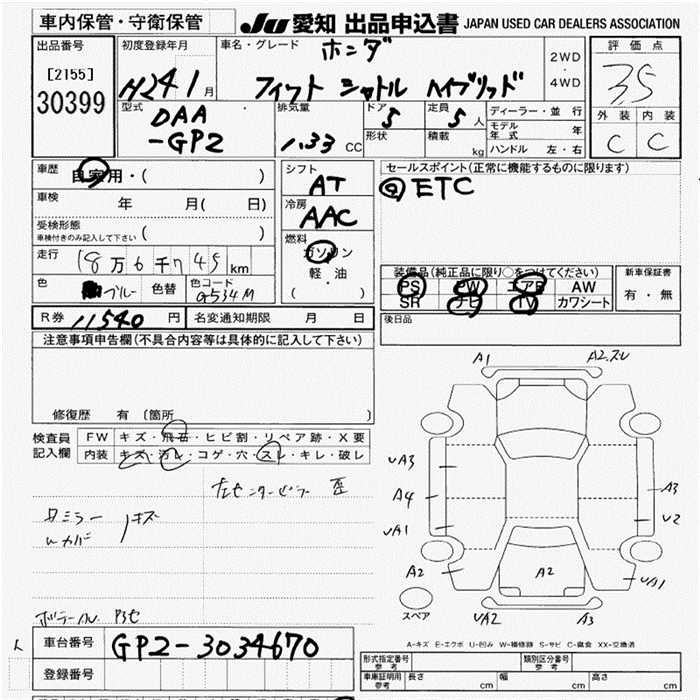 車内保管・守衛保管 JU 愛知 出品申込書 JAPAN USED CAR DEALERS ASSOCIATION
出品番号 初度登録年月 車名・グレード ホンダ 2WD・4WD 評価点
[2155] 30399 H24 1月 フィット シャトル ハイブリッド 3.5
型式 DAA-GP2 排気量 1.33 CC ドア 5 定員 5人 ディーラー・並行 外装 内装
形状 積載 kg モデル年式 年 C C
ハンドル 左・右
車歴 自家用・( )
シフト AT
セールスポイント(正常に機能するものに限ります)
車検 年 月( 日)
冷房 AAC
ETC
受検形態 車検付きのみ記入して下さい ( )
燃料 ガソリン 軽・油 ( )
走行 18万6千745km
色 ブルー 色替 色コード G534M
装備品(純正品に限り○をつけてください) 新車保証書
PS PW エアB AW 有・無
SR ナビ TV カワシート
R券 11540円 名変通知期限 月 日
後日品
注意事項申告欄(不具合内容等は具体的に記入して下さい)
修復歴 有 〔箇所 〕
検査員記入欄 FW キズ・飛石・ヒビ割・リペア跡・X要
内装 キズ・汚レ・コゲ・穴・スレ・キレ・破レ
左センターピラー 歪
キズ
A1 A2.スレ
UA3
A4 A3
UA1 U2
A2 A2 UA1
スペア UA2 A3
A-キズ E-エクボ U-凹み W-補修跡 S-サビ C-腐食 XX-交換済
車台番号 GP2-3034670
登録番号
形式指定番号 参考 類別区分番号 参考
車庫証明用 参考 長さ cm 幅 cm 高さ cm